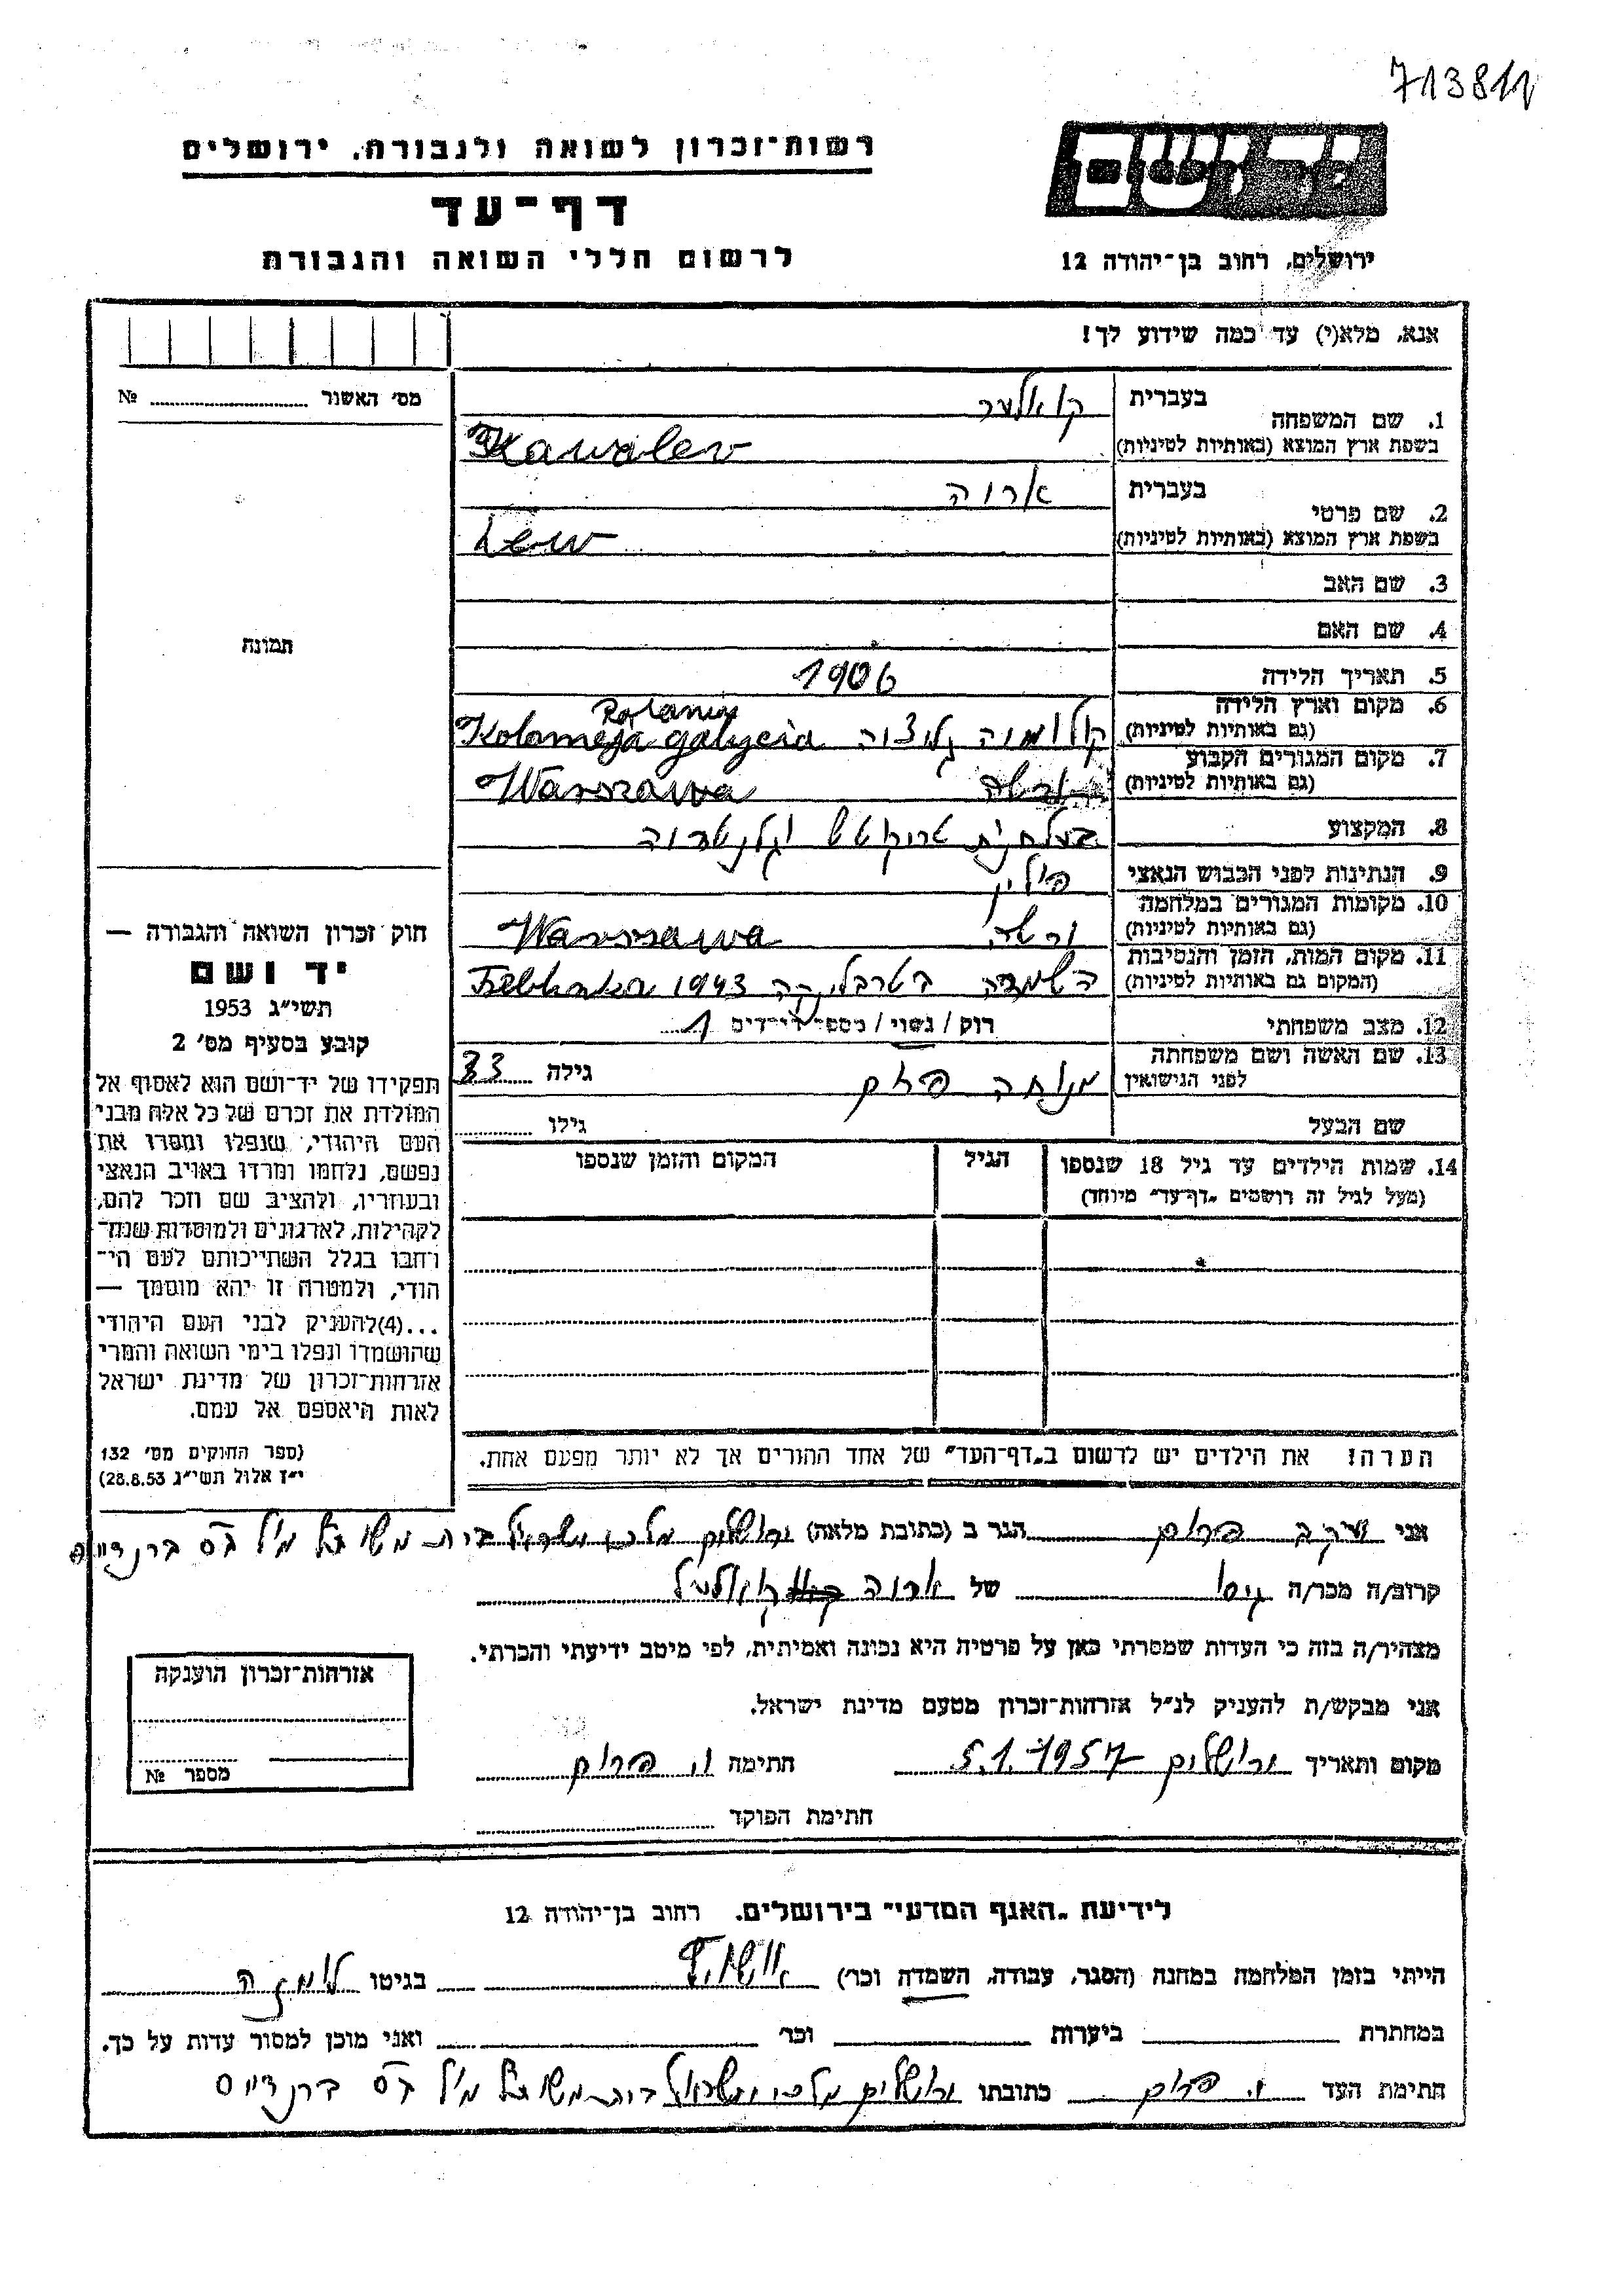 713811
רשות־זכרון לשואה ולגבורה, ירושלים
דף־עד
לרשום חללי השואה והגבורה
יד ושם
ירושלים, רחוב בן־יהודה 12
אנא, מלא(י) עד כמה שידוע לך!
מס׳ האשור №
1. שם המשפחה
בעברית
קואלער
בשפת ארץ המוצא (באותיות לטיניות)
Kawaler
2. שם פרטי
בעברית
אריה
בשפת ארץ המוצא (באותיות לטיניות)
Lew
3. שם האב
4. שם האם
תמונה
5. תאריך הלידה 1906
6. מקום וארץ הלידה
(גם באותיות לטיניות) קולומיה גליציה Kolomeja galycia
7. מקום המגורים הקבוע
(גם באותיות לטיניות) ורשה Warszawa
8. המקצוע
9. הנתינות לפני הכבוש הנאצי פולין
10. מקומות המגורים במלחמה
(גם באותיות לטיניות) ורשה Warszawa
11. מקום המות, הזמן והנסיבות
(המקום גם באותיות לטיניות) השמדה בטרבלינקה 1943 Treblinka
12. מצב משפחתי רוק / נשוי / מספר הילדים 1
13. שם האשה ושם משפחתה
לפני הנישואין מנוחה פרום גילה 33
שם הבעל גילו
14. שמות הילדים עד גיל 18 שנספו
(מעל לגיל זה רושמים „דף־עד״ מיוחד)
הגיל
המקום והזמן שנספו
הערה! את הילדים יש לרשום ב„דף־העד״ של אחד ההורים אך לא יותר מפעם אחת.
חוק זכרון השואה והגבורה —
יד ושם
תשי״ג 1953
קובע בסעיף מס׳ 2
תפקידו של יד־ושם הוא לאסוף אל
המולדת את זכרם של כל אלה מבני
העם היהודי, שנפלו ומסרו את
נפשם, נלחמו ומרדו באויב הנאצי
ובעוזריו, ולהציב שם וזכר להם,
לקהילות, לארגונים ולמוסדות שנח־
רבו בגלל השתייכותם לעם הי־
הודי, ולמטרה זו יהא מוסמך —
...(4)להעניק לבני העם היהודי
שהושמדו ונפלו בימי השואה והמרי
אזרחות־זכרון של מדינת ישראל
לאות היאספם אל עמם.
(ספר החוקים מס׳ 132
י״ז אלול תשי״ג 28.8.53)
אני פרום הגר ב (כתובת מלאה) ירושלים
קרוב/ה מכר/ה גיסו של אריה
מצהיר/ה בזה כי העדות שמסרתי כאן על פרטיה היא נכונה ואמיתית, לפי מיטב ידיעתי והכרתי.
אני מבקש/ת להעניק לנ״ל אזרחות־זכרון מטעם מדינת ישראל.
מקום ותאריך ירושלים 5.1.1957 חתימה י. פרום
חתימת הפוקד
אזרחות־זכרון הוענקה
מספר №
לידיעת „האגף המדעי״ בירושלים, רחוב בן־יהודה 12
הייתי בזמן המלחמה במחנה (הסגר, עבודה, השמדה וכר׳) בגיטו
במחתרת ביערות וכר׳ ואני מוכן למסור עדות על כך.
חתימת העד י. פרום כתובתו ירושלים